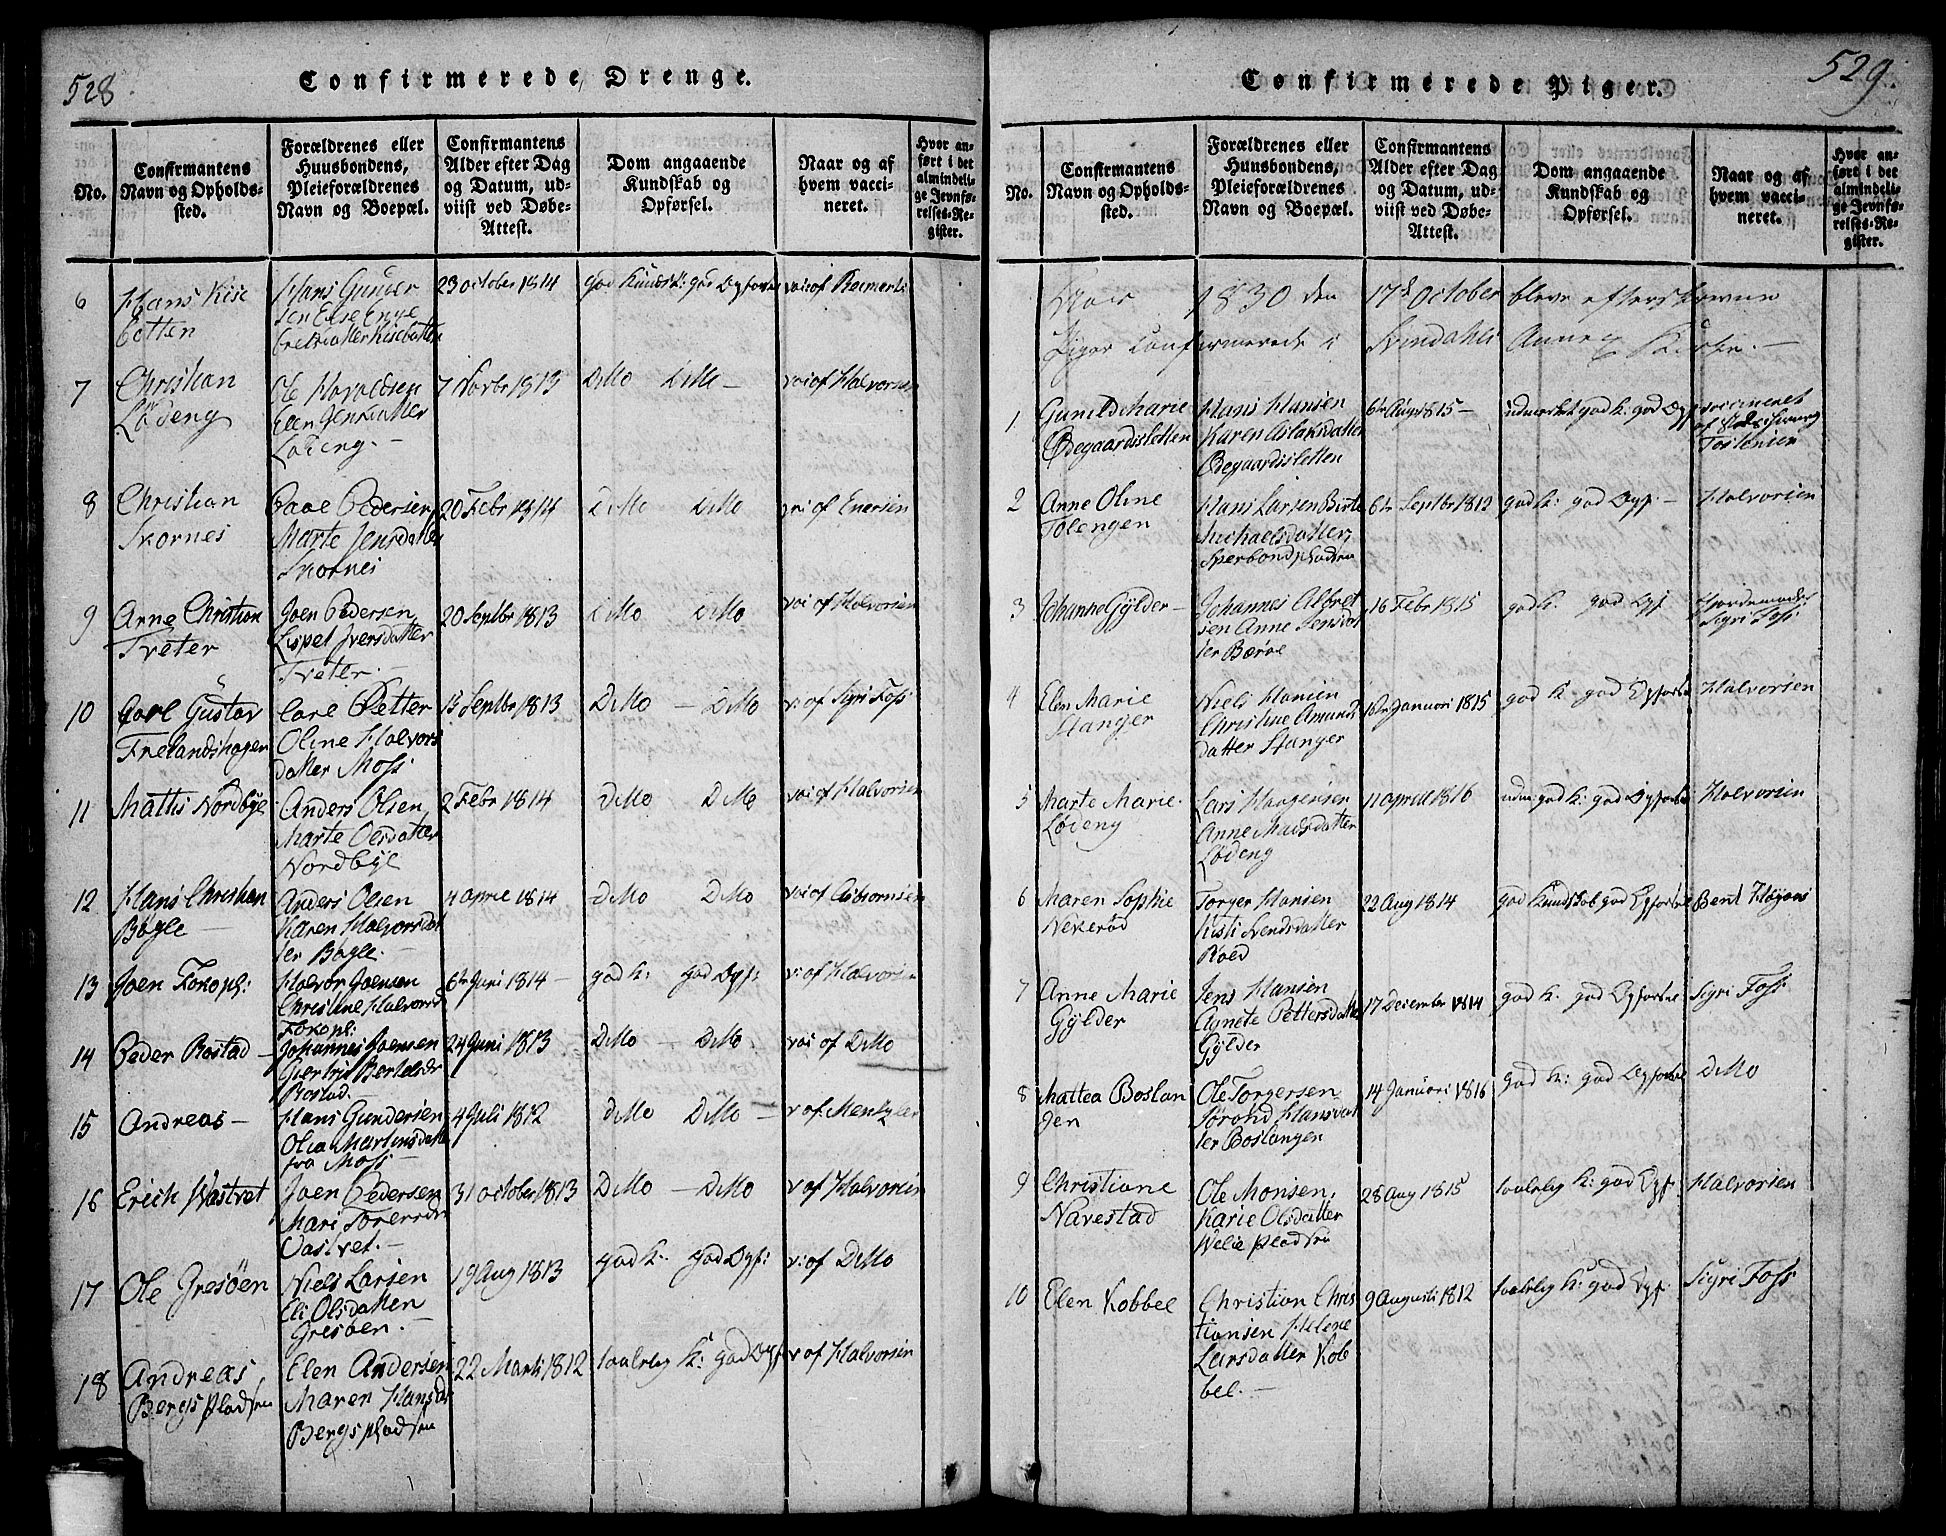 528
Confirmerede Drenge.
No.
Confirmantens
Navn og Opholds-
sted.
Forældrenes eller
Huusbondens,
Pleieforældrenes
Navn og Boepæl.
Confirmantens
Alder efter Dag
og Datum, ud-
viist ved Døbe-
Attest.
Dom angaaende
Kundskab og
Opførsel.
Naar og af
hvem vacci-
neret.
Hvor an-
ført i det
almindeli-
ge Jevnfø-
relses-Re-
gister.
6
Hans Kise
botten
Hans Gunder
sen Else
Kisebotten
23 october 1814
god Kundsk: god Opførsel
vai of
7
Christian
Lödeng
Ole Haraldsen
Elen Jensdatter
Lödeng.
7 Novbr 1813
DiMo DiMo
vai of Halvorsen
8
Christian
Skornes
Povel Pedersen
Marte Jensdatter
Skornes
20 Febr 1814
DiMo DiMo
vai of Enersen
9
Arne Christian
Tveter
Joen Pedersen
Lispet Iversdatter
Tveter.
20 Septbr 1813
DiMo DiMo
vai of Halvorsen
10
Carl Gustav
Frelandshagen
Carl Petter
Oline Halvors
datter Moss
13 Septbr 1813
DiMo - DiMo
v: of Sigri Foss
11
Mathis Nordbye
Anders Olsen
Marte Olsdatter
Nordbye
2 Febr 1814
DiMo DiMo
vai of Halvorsen
12
Hans Christian
Bøgle
Anders Olsen
Karen Halvorsdat
ter Bøgle.
4 april 1814
DiMo DiMo
vai of Asbiornsen
13
Joen Fokopl:
Halvor Joensen
Christine Halvorsd
Fokopl:
6te Juni 1814
god K: god Opf:
v: of Halvorsen
14
Peder Rostad
Johannes Joensen
Giertrud Bertelsdr
Rostad.
24 Juni 1813
DiMo - DiMo
vai of DiMo
15
Andreas
Hans Gundersen
Olia Martinsdatter
fra Moss
4 Juli 1812
DiMo DiMo
v of: Mentzler
16
Erich Vastvet
Joen Pedersen
Mari Torersdr
Vastvet.
31 october 1813
DiMo - DiMo
v of Halvorsen
17
Ole Gresöen
Niels Larsen
Eli Olsdatter
Gresöen.
19 Aug 1813
god K: god Opf:
v: of DiMo
18
Andreas
Bergs pladsen
Elen Andersen
Maren Hansdr
Bergs pladsen
22 Marti 1812
taalelig K: god Opf
v of Halvorsen
529.
Confirmerede Piger.
No.
Confirmantens
Navn og Opholds-
sted.
Forældrenes eller
Huusbondens,
Pleieforældrenes
Navn og Boepæl.
Confirmantens
Alder efter Dag
og Datum, ud-
viist ved Døbe-
Attest.
Dom angaaende
Kundskab og
Opførsel.
Naar og af
hvem vacci-
neret.
Hvor an-
ført i det
almindeli-
ge Jevnfø-
relses-Re-
gister.
Aar 1830 den 17de October bleve efterskrevne
Piger confirmerede i Svindahls Annex Kirke.
1
Gunild Marie
Ødegaardsletten
Hans Hansen
Karen Aslaksdatter
Ødegaardsletten
6te Aug 1815
udmerket god K: god Opf
vaccineret
af
Tostensen
2
Anne Oline
Tolengen
Hans Larsen Birte
Michaelsdatter
pladsen
6te Septbr 1812
god K: god Opf.
Halvorsen
3
Johanne Gylder
Johannes Albret
sen Anne Jensdat
ter Bærøe
16 Febr 1815
god K. god Opf
Jordemoder
Sigri Foss
4
Elen Marie
Stanger
Niels Hansen
Christine Amunds
datter Stanger
16de Januari 1815
god K. god Opførsel
Halvorsen
5
Marte Marie
Lødeng
Lars Haagensen
Anne Madsdatter
Lødeng
11 april 1816
udm: god K: god Opførsel
Halvorsen
6
Maren Sophie
Nekerød
Torger Hansen
Kisti Svendsdatter
Roed
22 Aug 1814
god Kundskab god Opførsel
Bent Høyens
7
Anne Marie
Gylder
Jens Hansen
Agnete Pettersdatter
Gylder
17 December 1814
god K. god Opførsel
Sigri Foss
8
Mattea Boslan
gen
Ole Torgersen
Jørond Hansdat
ter Boslangen
14 Januari 1816
god K: god Opførsel
DiMo
9
Christiane
Navestad
Ole Monsen
Karie Olsdatter
Welie pladsen
28 Aug 1815
taalelig K: god Opf.
Halvorsen
10
Elen Kobbel
Christian Chris
tiansen Helene
Larsdatter Kob
bel.
9 Augusti 1812
taalelig K: god Opf.
Sigri Foss